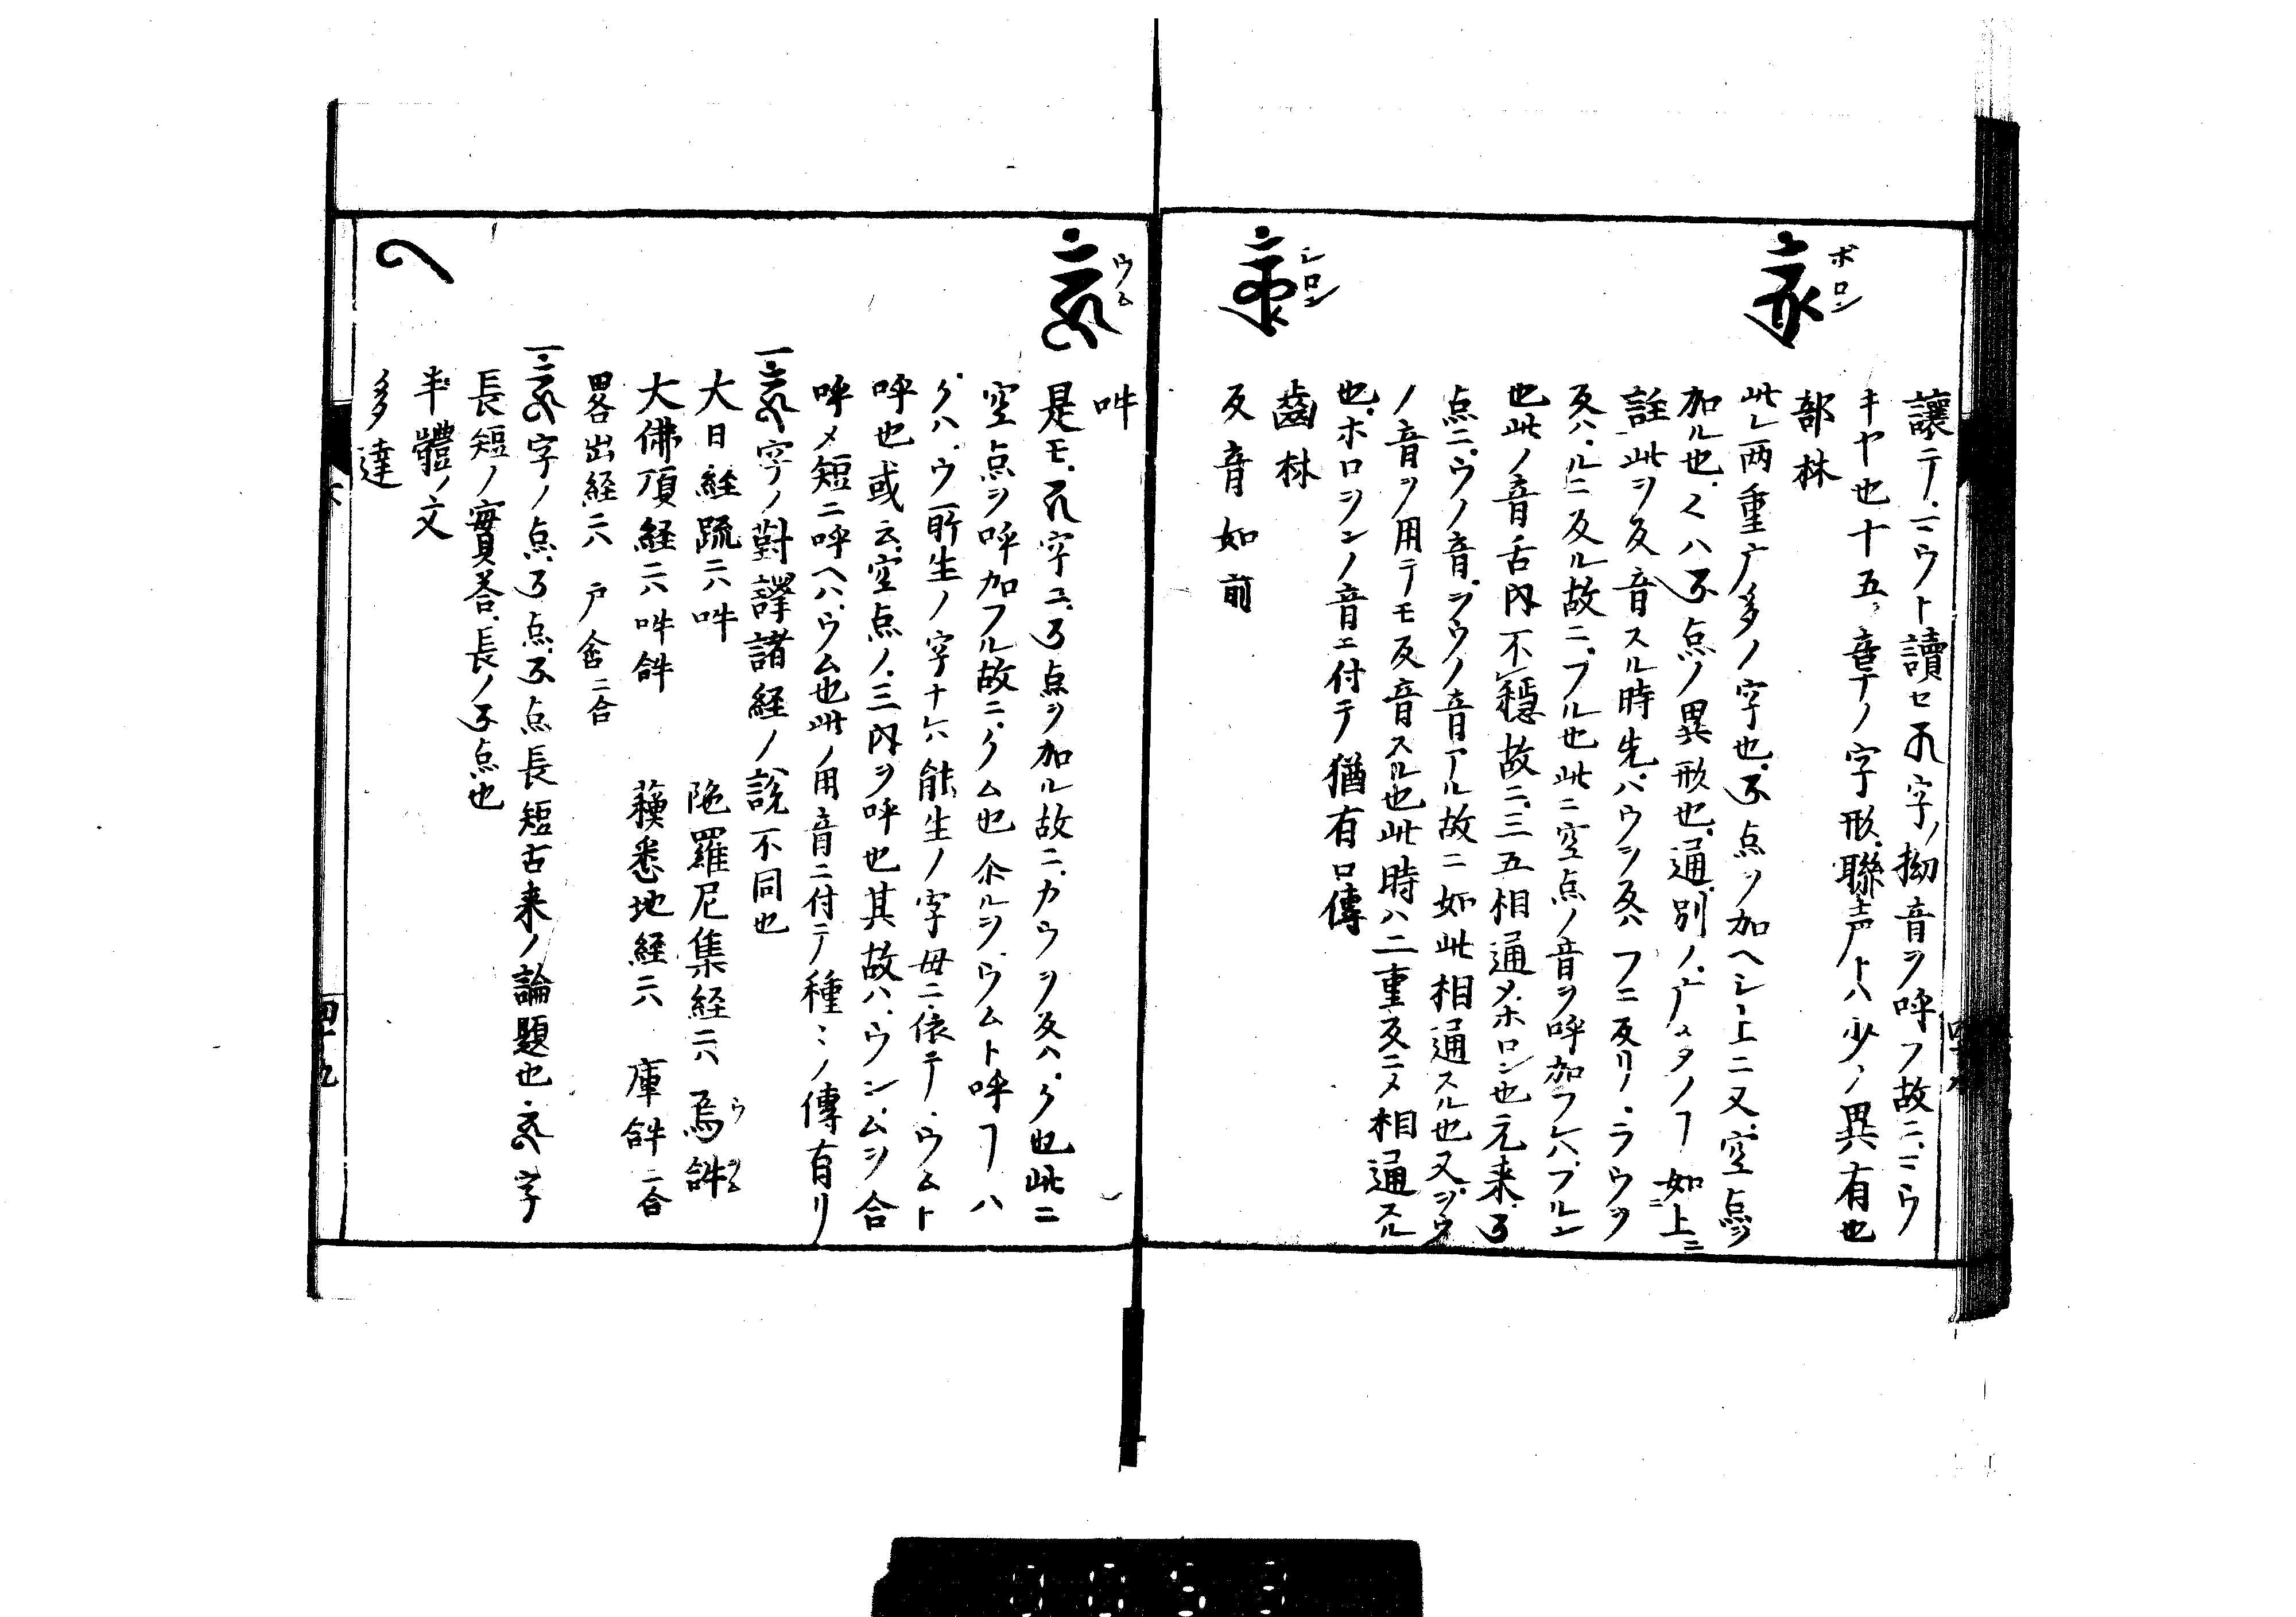 讓テ、ミウト讀セ
字ノ拗音ヲ呼フ故ニ、ミウ
キヤ也十五章ノ字形、聯声トハ少ノ異有也
ボロン
部林
此レ両重广多ノ字也、点ヲ加ヘシ上ニ又、空点ヲ
加ル也、くハ点ノ異形也、通別ノ广メタノヿ如上ニ
註此ヲ反音スル時先、バウヲ反ハフニ反リ、ラウヲ
反ハ、ルニ反ル故ニ、フル也此ニ空点ノ音ヲ呼加フレハ、フルン
也此ノ音舌内不穩故ニ、三五相通メ、ボロン也元来、
点ニ、ウノ音、ヲウノ音アル故ニ如此相通スル也又、ヲウ
ノ音ヲ用テモ反音スル也此時ハ二重反ニメ相通スル
也、ボロヲンノ音ニ付テ猶有口傳
シロン
齒林
反音如前
ウム
吽
是モ、字ニ、点ヲ加ル故ニ、カウヲ反ハ、ク也此ニ
空点ヲ呼加フル故ニ、クム也尒ルヲ、ウムト呼フヿハ
クハ、ウ所生ノ字ナレハ能生ノ字母ニ、依テ、ウムト
呼也或云、空点ノ、三内ヲ呼也其故ハ、ウン、ムヲ合
呼メ短ニ呼ヘハ、ウム也此ノ用音ニ付テ種ミノ傳有リ
一字ノ對譯諸経ノ説不同也
大日経䟽ニハ吽 陁羅尼集経ニハ 烏𤙖
大佛頂経ニハ吽𤙖 蘓悉地経ニハ 庫𤙖二合
畧出経ニハ 戸㑒二合
一字ノ点、点、点長短古来ノ論題也字
長短ノ實荅、長ノ点也
半體ノ文
多達
四十九